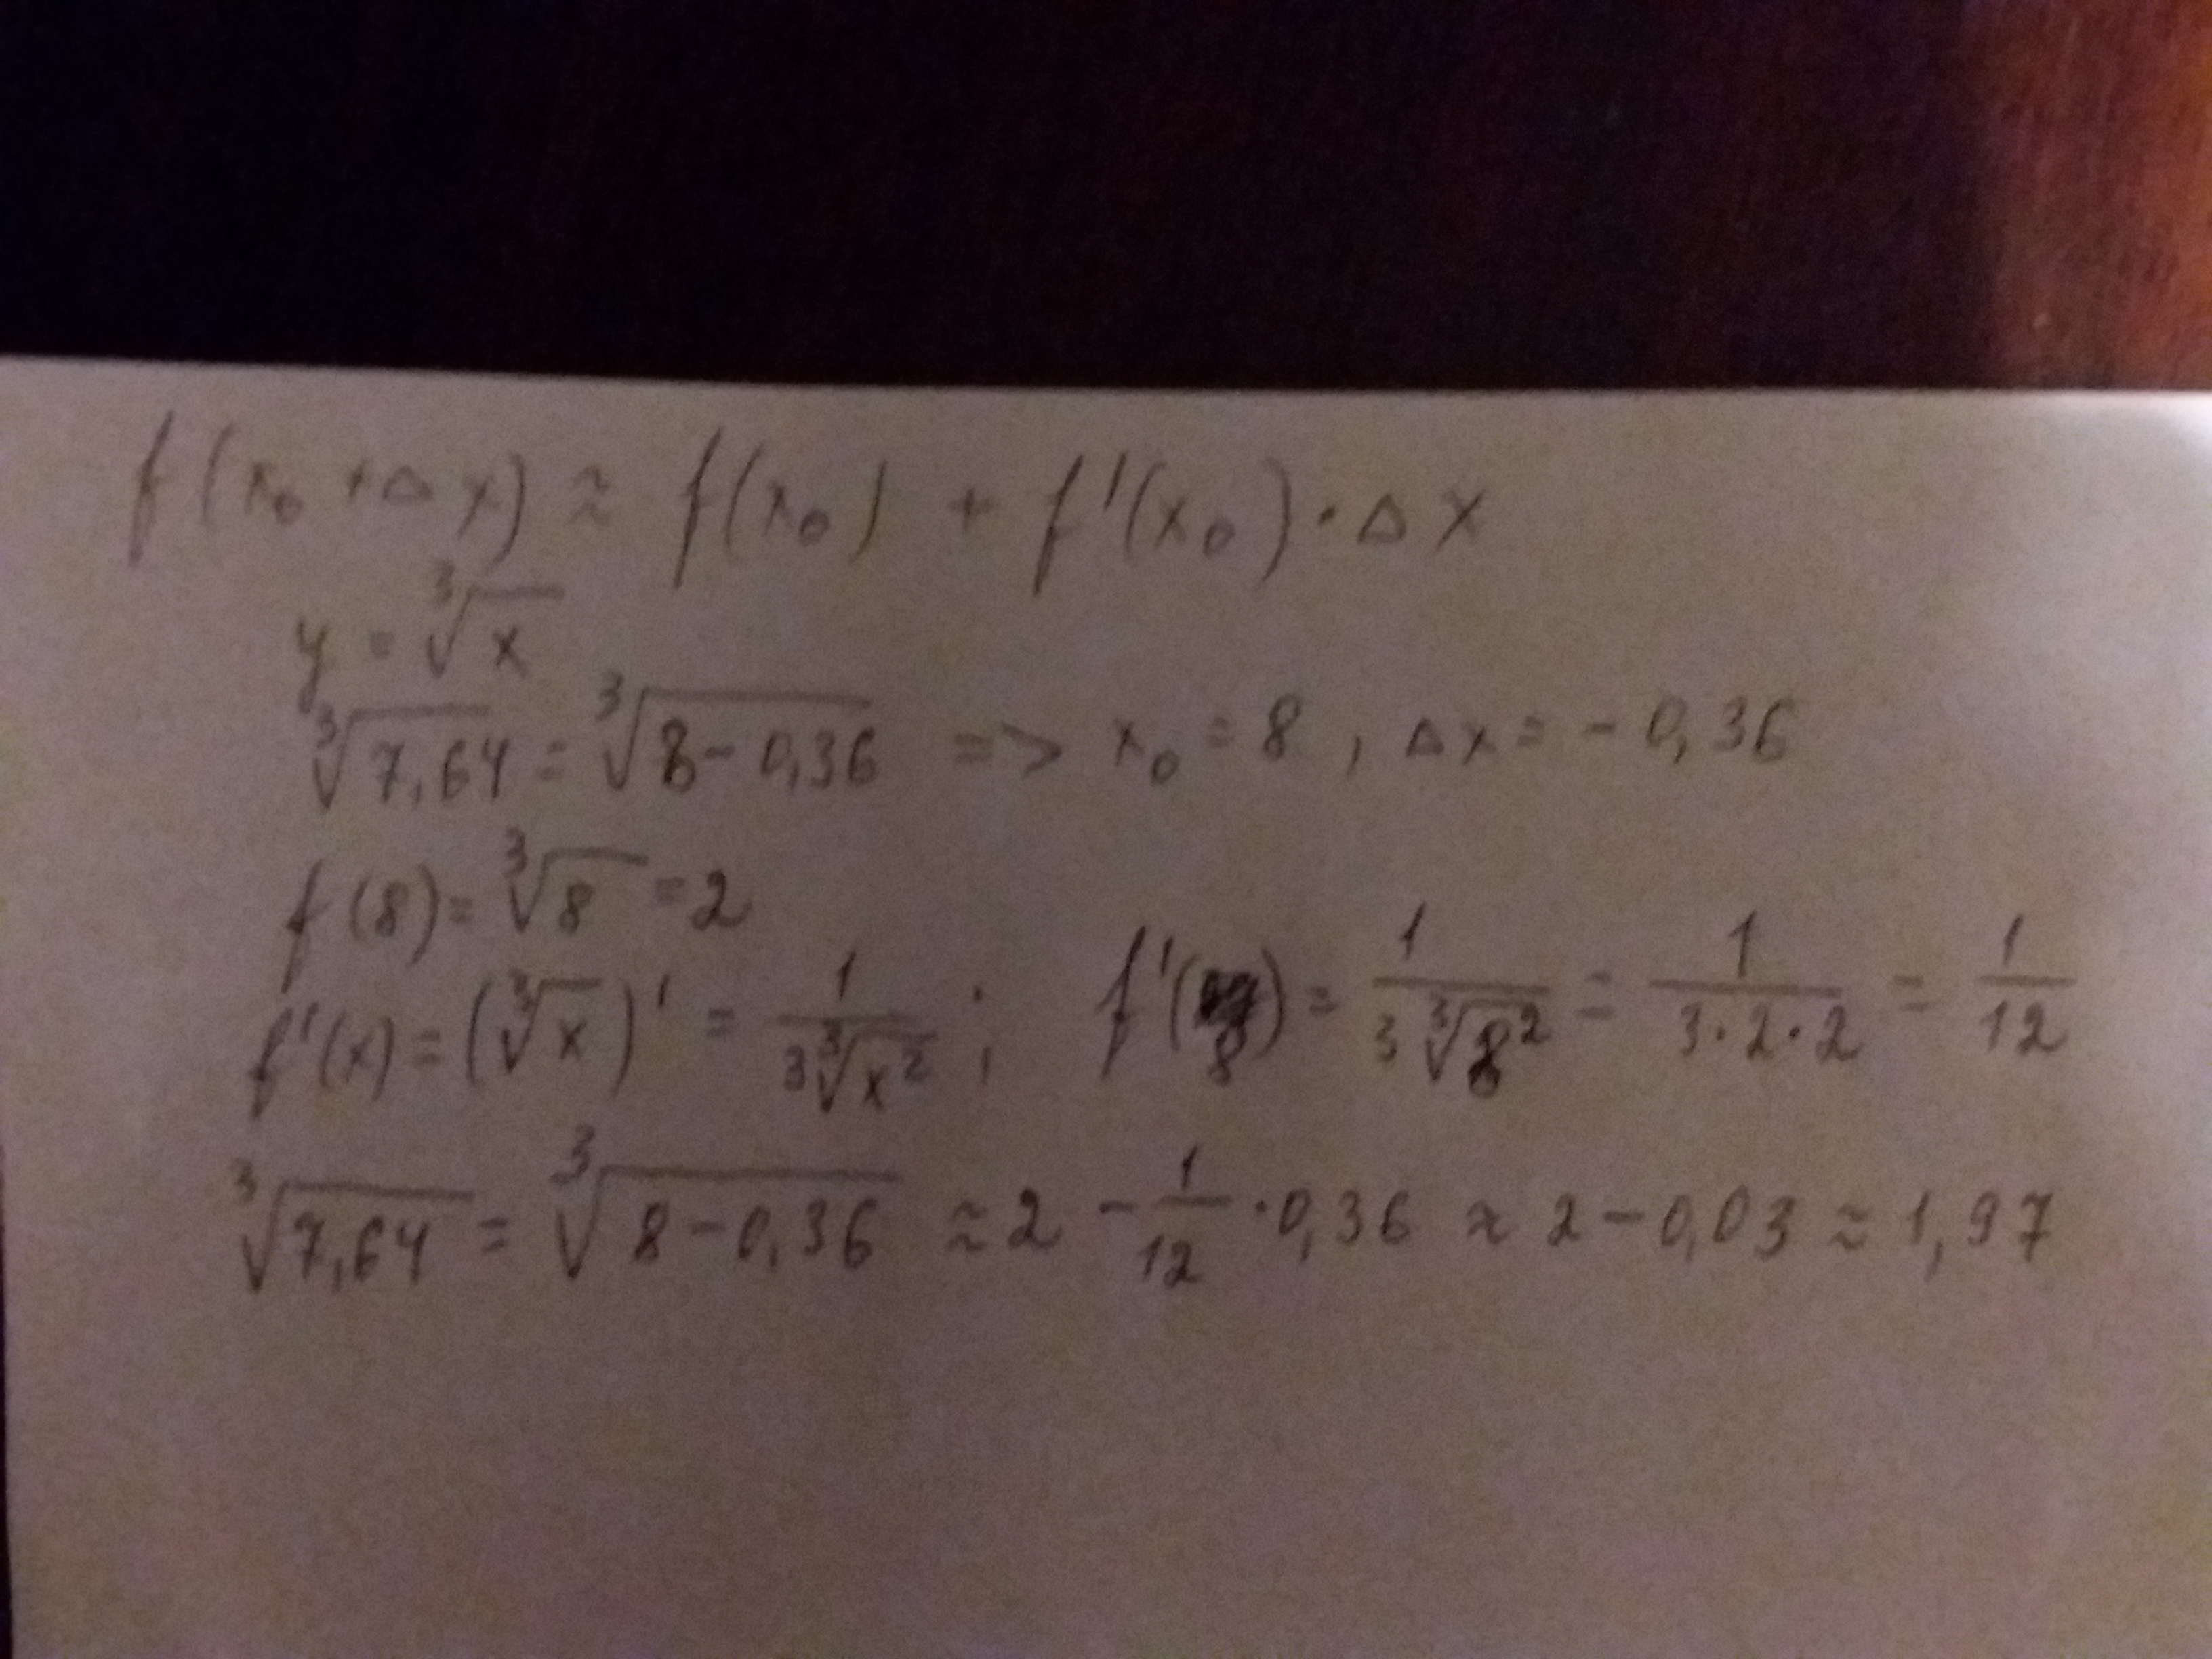 f(x₀ + Δx) ≈ f(x₀) + f'(x₀)·Δx
y = ∛x
∛7,64 = ∛(8 - 0,36) => x₀ = 8, Δx = -0,36
f(8) = ∛8 = 2
f'(x) = (∛x)' = 1/(3∛x²); f'(8) = 1/(3∛8²) = 1/(3·2·2) = 1/12
∛7,64 = ∛(8 - 0,36) ≈ 2 - 1/12 · 0,36 ≈ 2 - 0,03 ≈ 1,97